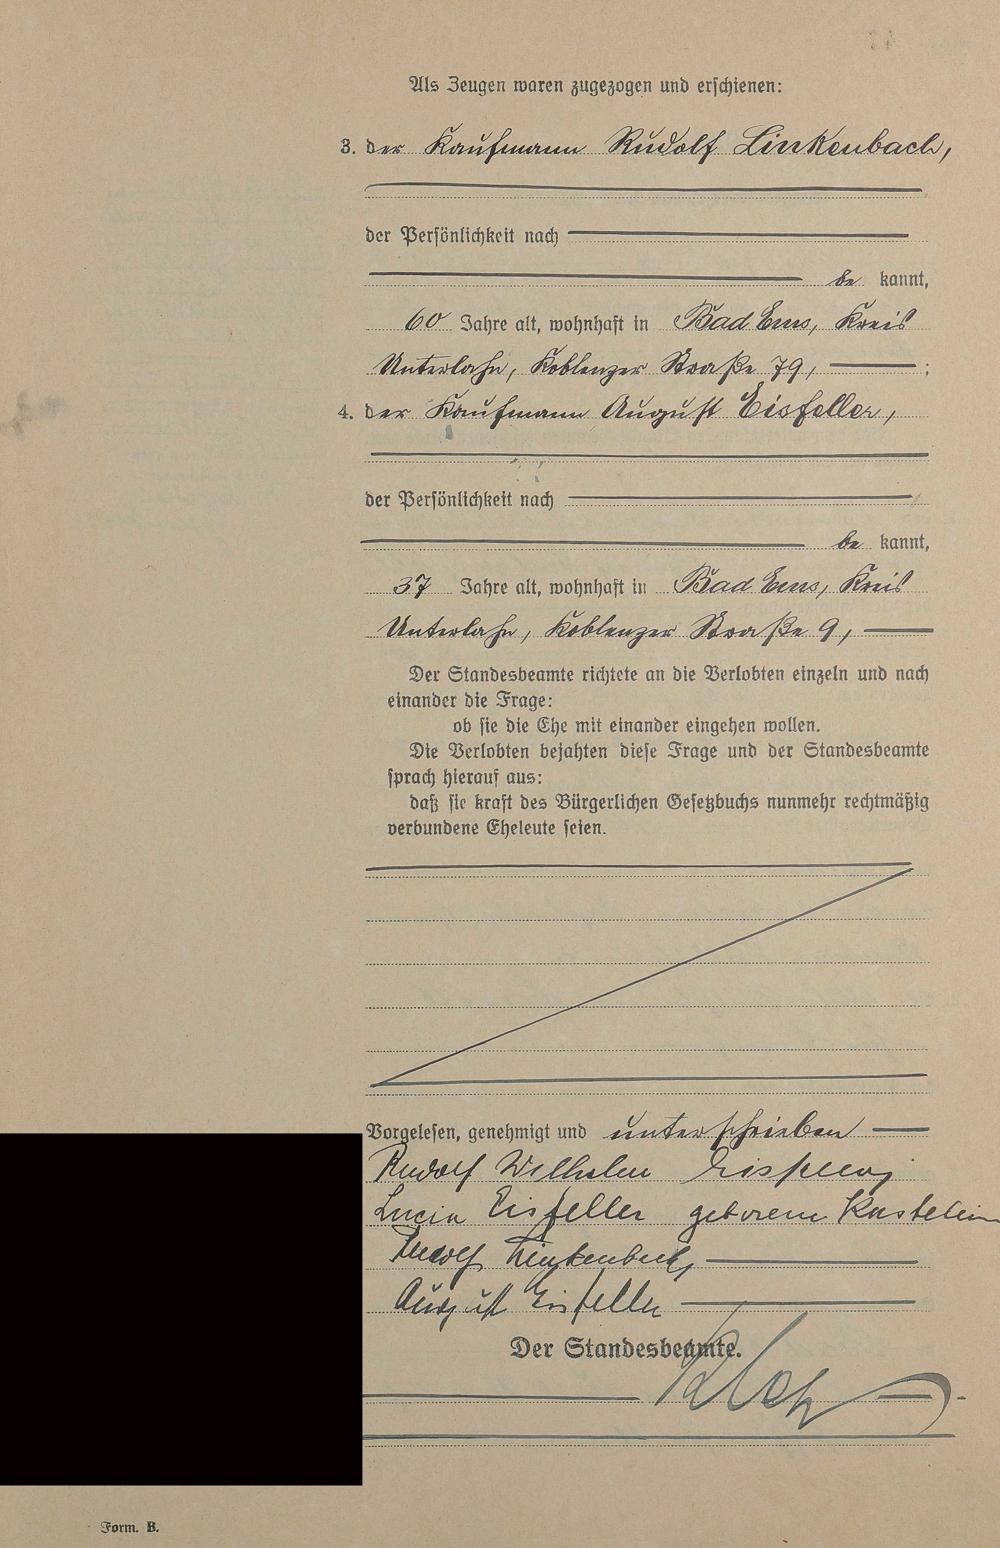 Als Zeugen waren zugezogen und erschienen:
3. der Kaufmann Rudolf Linkenbach,
der Persönlichkeit nach
be kannt,
60 Jahre alt, wohnhaft in Bad Ems, Kreis
Unterlahn, Koblenzer Straße 79, ;
4. der Kaufmann August Eisfeller,
der Persönlichkeit nach
be kannt,
37 Jahre alt, wohnhaft in Bad Ems, Kreis
Unterlahn, Koblenzer Straße 9,
Der Standesbeamte richtete an die Verlobten einzeln und nach
einander die Frage:
ob sie die Ehe mit einander eingehen wollen.
Die Verlobten bejahten diese Frage und der Standesbeamte
sprach hierauf aus:
daß sie kraft des Bürgerlichen Gesetzbuchs nunmehr rechtmäßig
verbundene Eheleute seien.
Vorgelesen, genehmigt und unterschrieben
Rudolf Wilhelm
Lucia Eisfeller geborene
Rudolf Linkenbach
August Eisfeller
Der Standesbeamte.
Form. B.